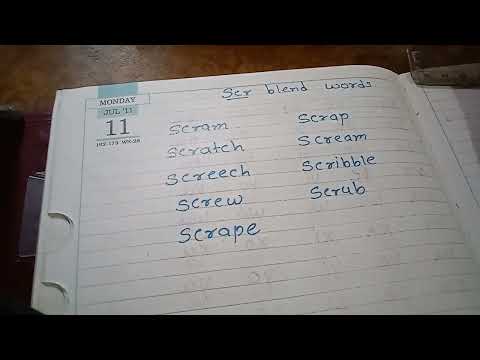 MONDAY
JUL '11
11
192-173 WK-28
Scr blend words
Scram Scrap
Scratch Scream
Screech Scribble
Screw Scrub
Scrape